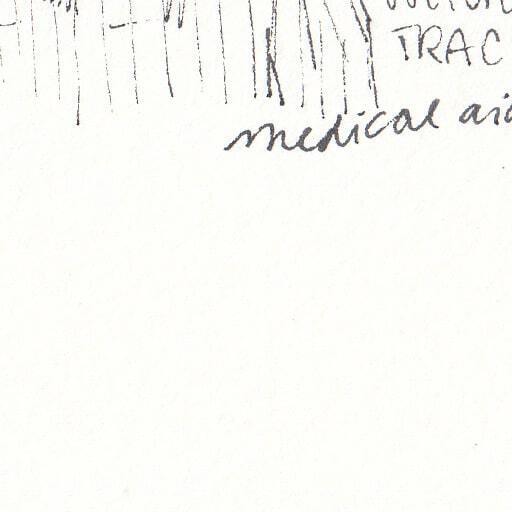 TRAC
medical aid